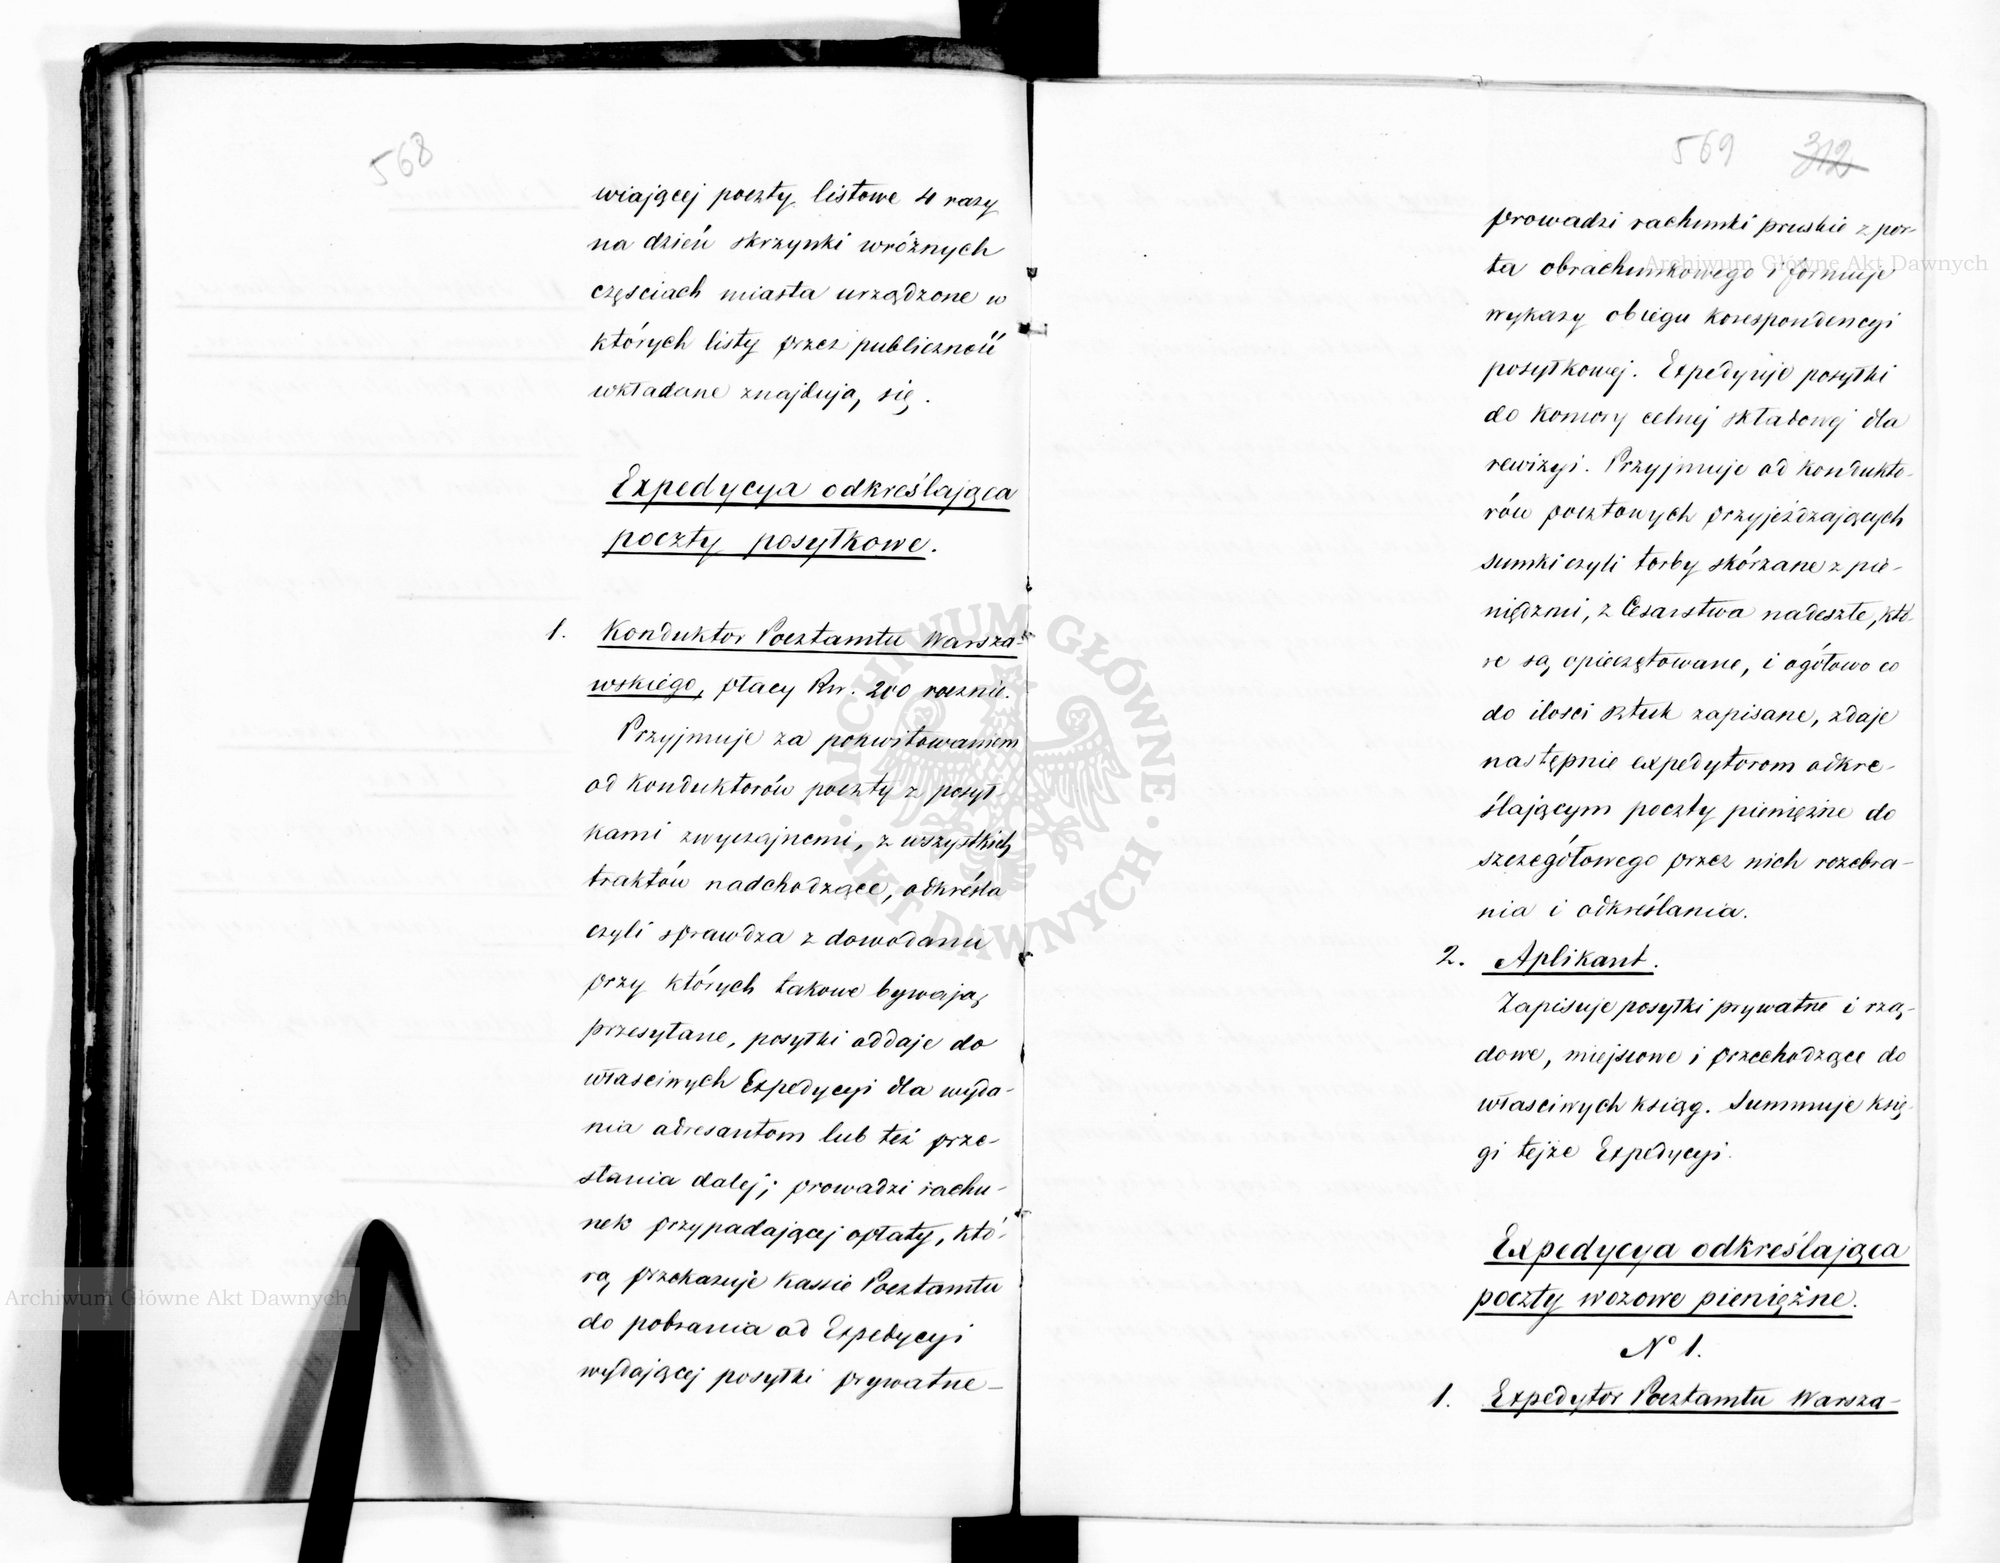 568
wiającej poczty listowe 4 razy
na dzień skrzynki wróżnych
częsciach miasta urządzone w
których listy przez publiczność
wkładane znajdują się.
Expedycya odkreślająca
poczty posyłkowe.
1. Konduktor Pocztamtu Warsza-
wskiego, płacy Rsr. 200 rocznie.
Przyjmuje za pokwitowaniem
od Konduktorów poczty z posył-
kami zwyczajnemi, z wszystkich
traktów nadchodzące, odkreśla
czyli sprawdza z dowodami
przy których takowe bywają
przesyłane, posyłki oddaje do
właściwych Expedycyi dla wyda-
nia adresantom lub też prze-
słania dalej; prowadzi rachu-
nek przypadającej opłaty, któ-
rą przekazuje Kassie Pocztamtu
do pobrania od Expedycyi
wydającej posyłki prywatne-
569 312
prowadzi rachunki pruskie z por-
ta obrachunkowego i formuje
wykazy obiegu korespondencyi
posyłkowej. Expedyuje posyłki
do Komory celnej składowej dla
rewizyi. Przyjmuje od kondukto-
rów pocztowych przyjeżdzających
sumki czyli torby skórzane z pie-
niędzmi, z Cesarstwa nadeszłe, któ-
re są opieczętowane, i ogółowo co
do ilosci sztuk zapisane, zdaje
następnie expedytorom odkre-
ślającym poczty pieniężne do
szczegółowego przez nich rozebra-
nia i odkreślania.
2. Aplikant.
Zapisuje posyłki prywatne i rzą-
dowe, miejscowe i przechodzące do
właściwych ksiąg. Summuje księ-
gi tejże Expedycyi.
Expedycya odkreślająca
poczty wozowe pieniężne.
N° 1.
1. Expedytor Pocztamtu Warsza-
Archiwum Główne Akt Dawnych
Archiwum Główne Akt Dawnych
ARCHIWUM GŁÓWNE · AKT DAWNYCH ·